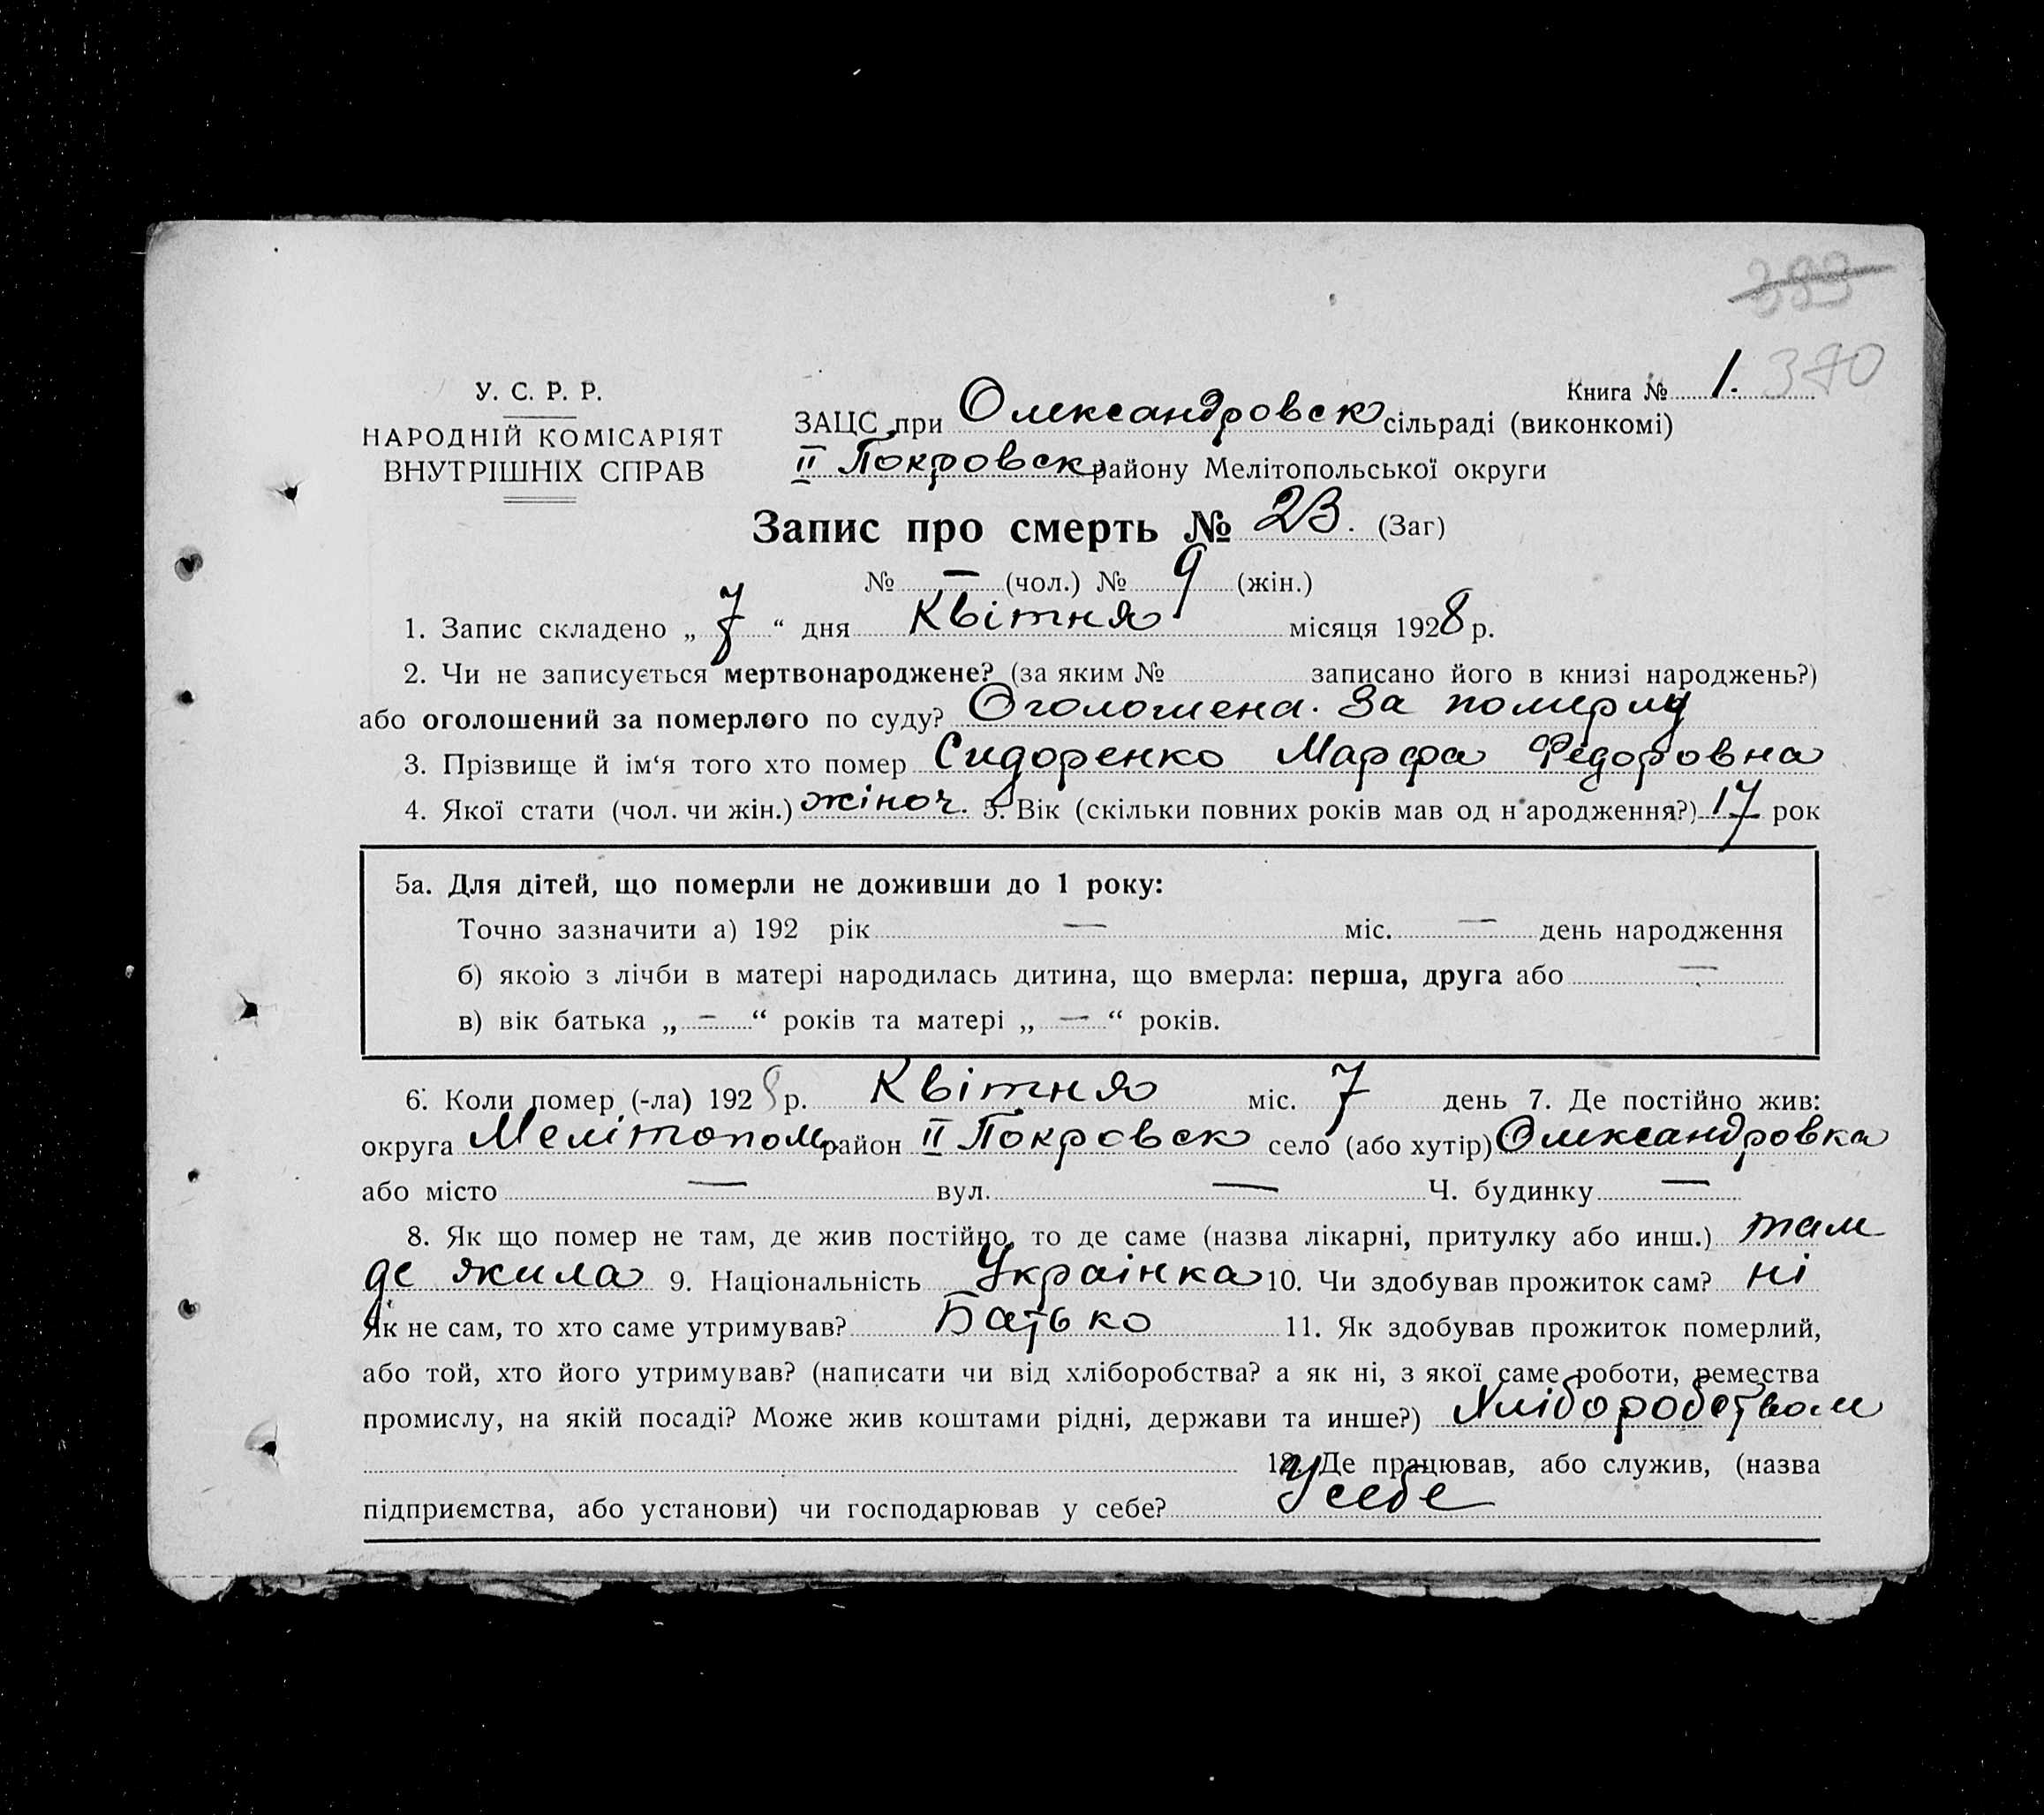 383
У. С. Р. Р.
НАРОДНІЙ КОМІСАРІЯТ
ВНУТРІШНІХ СПРАВ
Книга № 1. 370
ЗАЦС при Олександровск сільраді (виконкомі)
II Покровск району Мелітопольської округи
Запис про смерть № 23. (Заг)
№ — (чол.) № 9 (жін.)
1. Запис складено „ 7 “ дня Квітня місяця 1928 р.
2. Чи не записується мертвонароджене? (за яким № записано його в книзі народжень?)
або оголошений за померлого по суду? Оголошена. За померлу
3. Прізвище й ім‘я того хто помер Сидоренко Марфа Федоровна
4. Якої стати (чол. чи жін.) жіноч. 5. Вік (скільки повних років мав од народження?) 17 рок
5а. Для дітей, що померли не доживши до 1 року:
Точно зазначити а) 192 рік — міс. — день народження
б) якою з лічби в матері народилась дитина, що вмерла: перша, друга або —
в) вік батька „ — “ років та матері „ — “ років.
6. Коли помер (-ла) 1928 р. Квітня міс. 7 день 7. Де постійно жив:
округа Мелітопол район II Покровск село (або хутір) Олександровка
або місто — вул. — Ч. будинку —
8. Як що помер не там, де жив постійно, то де саме (назва лікарні, притулку або инш.) там
де жила 9. Національність Украінка 10. Чи здобував прожиток сам? ні
Як не сам, то хто саме утримував? Батько 11. Як здобував прожиток померлий,
або той, хто його утримував? (написати чи від хліборобства? а як ні, з якої саме роботи, ремества
промислу, на якій посаді? Може жив коштами рідні, держави та инше?) Хліборобством
12. Де працював, або служив, (назва
підприємства, або установи) чи господарював у себе? У себе